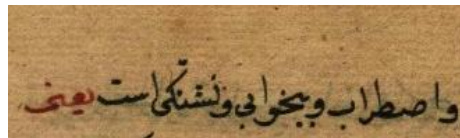 واضطراب وبیخوابی وتشنکی است یعنی